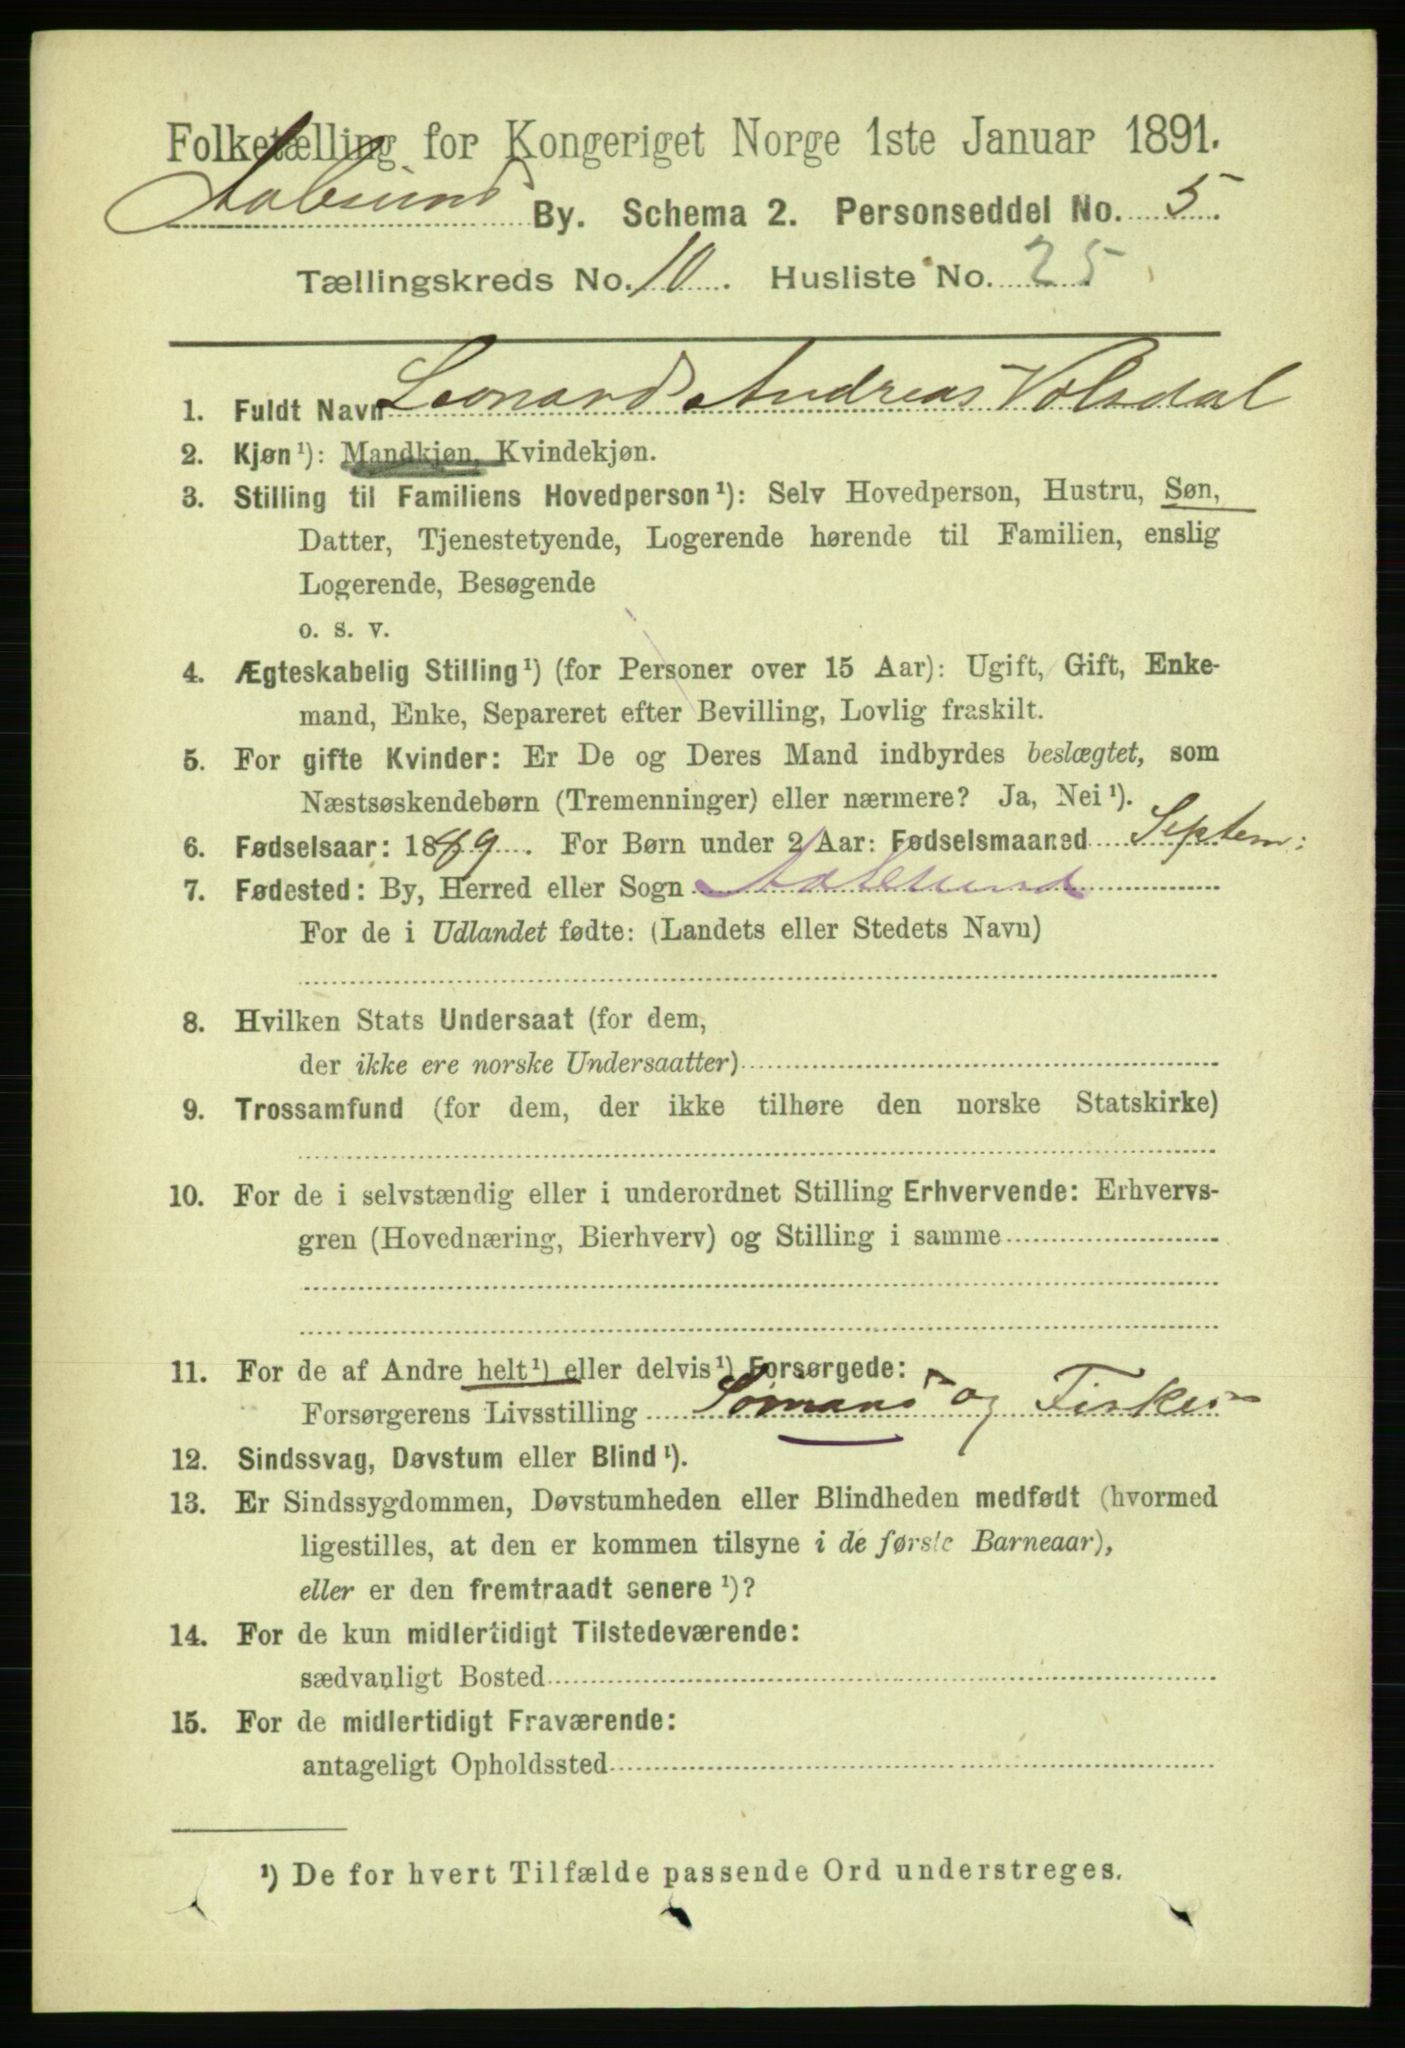 Folketælling for Kongeriget Norge 1ste Januar 1891.
Aalesund By. Schema 2. Personseddel No. 5.
Tællingskreds No. 10. Husliste No. 25
1. Fuldt Navn Leonard Andreas Volsdal
2. Kjøn¹): Mandkjøn, Kvindekjøn.
3. Stilling til Familiens Hovedperson¹): Selv Hovedperson, Hustru, Søn,
Datter, Tjenestetyende, Logerende hørende til Familien, enslig
Logerende, Besøgende
o. s. v.
4. Ægteskabelig Stilling¹) (for Personer over 15 Aar): Ugift, Gift, Enke-
mand, Enke, Separeret efter Bevilling, Lovlig fraskilt.
5. For gifte Kvinder: Er De og Deres Mand indbyrdes beslægtet, som
Næstsøskendebørn (Tremenninger) eller nærmere? Ja, Nei¹).
6. Fødselsaar: 1889. For Børn under 2 Aar: Fødselsmaaned Septem:
7. Fødested: By, Herred eller Sogn Aalesund
For de i Udlandet fødte: (Landets eller Stedets Navn)
8. Hvilken Stats Undersaat (for dem,
der ikke ere norske Undersaatter)
9. Trossamfund (for dem, der ikke tilhøre den norske Statskirke)
10. For de i selvstændig eller i underordnet Stilling Erhvervende: Erhvervs-
gren (Hovednæring, Bierhverv) og Stilling i samme
11. For de af Andre helt¹) eller delvis¹) Forsørgede:
Forsørgerens Livsstilling Sømand og Fisker
12. Sindssvag, Døvstum eller Blind¹).
13. Er Sindssygdommen, Døvstumheden eller Blindheden medfødt (hvormed
ligestilles, at den er kommen tilsyne i de første Barneaar),
eller er den fremtraadt senere¹)?
14. For de kun midlertidigt Tilstedeværende:
sædvanligt Bosted
15. For de midlertidigt Fraværende:
antageligt Opholdssted
¹) De for hvert Tilfælde passende Ord understreges.